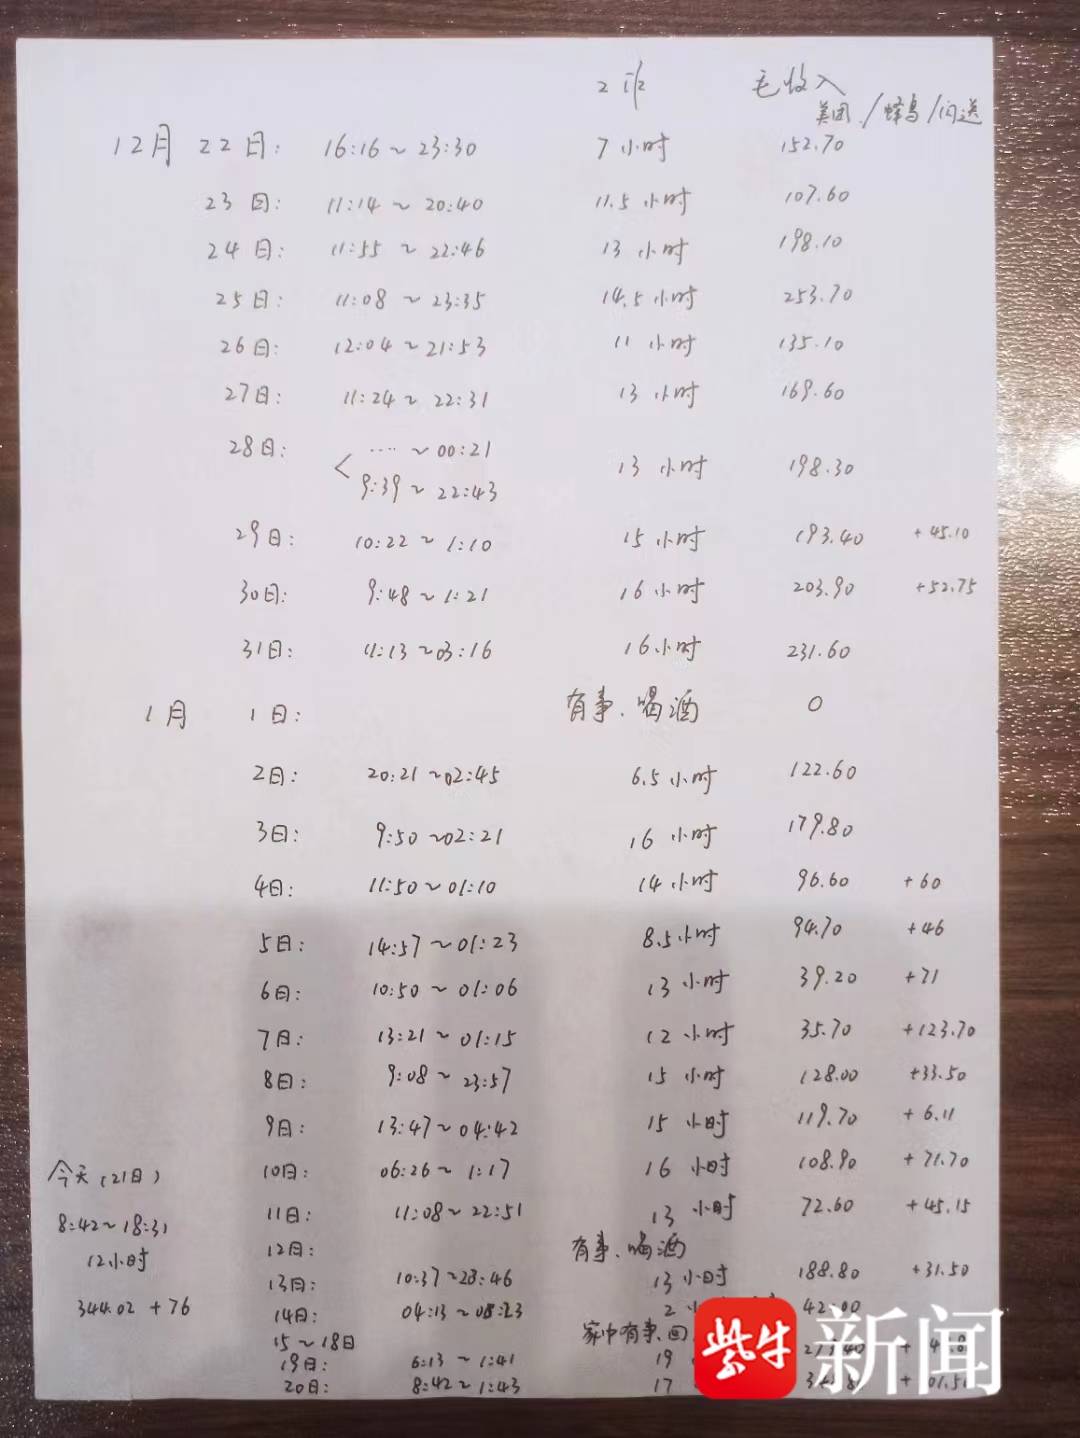 工时 毛收入
美团/蜂鸟/闪送
12月 22日: 16:16~23:30 7小时 152.70
23日: 11:14~20:40 11.5小时 107.60
24日: 11:55~22:46 13小时 198.10
25日: 11:08~23:35 14.5小时 253.70
26日: 12:04~21:53 11小时 135.10
27日: 11:24~22:31 13小时 169.60
28日: ····~00:21
9:39~22:43 13小时 198.30
29日: 10:22~1:10 15小时 193.40 +45.10
30日: 9:48~1:21 16小时 203.90 +52.75
31日: 11:13~03:16 16小时 231.60
1月 1日: 有事、喝酒 0
2日: 20:21~02:45 6.5小时 122.60
3日: 9:50~02:21 16小时 179.80
4日: 11:50~01:10 14小时 96.60 +60
5日: 14:57~01:23 8.5小时 94.70 +46
6日: 10:50~01:06 13小时 39.20 +71
7日: 13:21~01:15 12小时 35.70 +123.70
8日: 9:08~23:57 15小时 128.00 +33.50
9日: 13:47~04:42 15小时 119.70 +6.11
10日: 06:26~1:17 16小时 108.90 +71.70
11日: 11:08~22:51 13小时 72.60 +45.15
12日: 有事、喝酒
13日: 10:37~23:46 13小时 188.80 +31.50
14日: 04:13~08:23 2 42.00
15~18日 家中有事、回
19日: 6:13~1:41 19
20日: 8:42~1:43 17
今天(21日)
8:42~18:31
12小时
344.02 +76
紫牛新闻